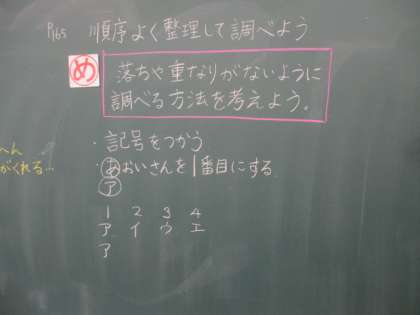 P165 順序よく整理して調べよう
め
落ちや重なりがないように
調べる方法を考えよう.
・記号をつかう
・あおいさんを1番目にする
ア
へん
がくれる…
1 2 3 4
ア イ ウ エ
ア